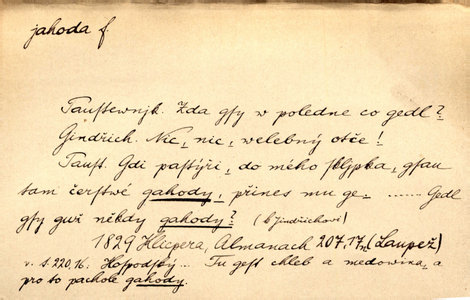 jahoda f.
Paustewnjk. Zda gsy w poledne co gedl?
Gindřich. Nic, nic, welebný otče!
Paust. Gdi pastýři, do mého sklípka, gsau
tam čerstwé gahody, přines mu ge. ...... Gedl
gsy guž někdy gahody? (k Jindřichovi)
1829 Klicpera, Almanach 207.17, (Laupež)
v. s 220, 16. Hospodský... Tu gest chléb a medowina, a
pro to pachole gahody.